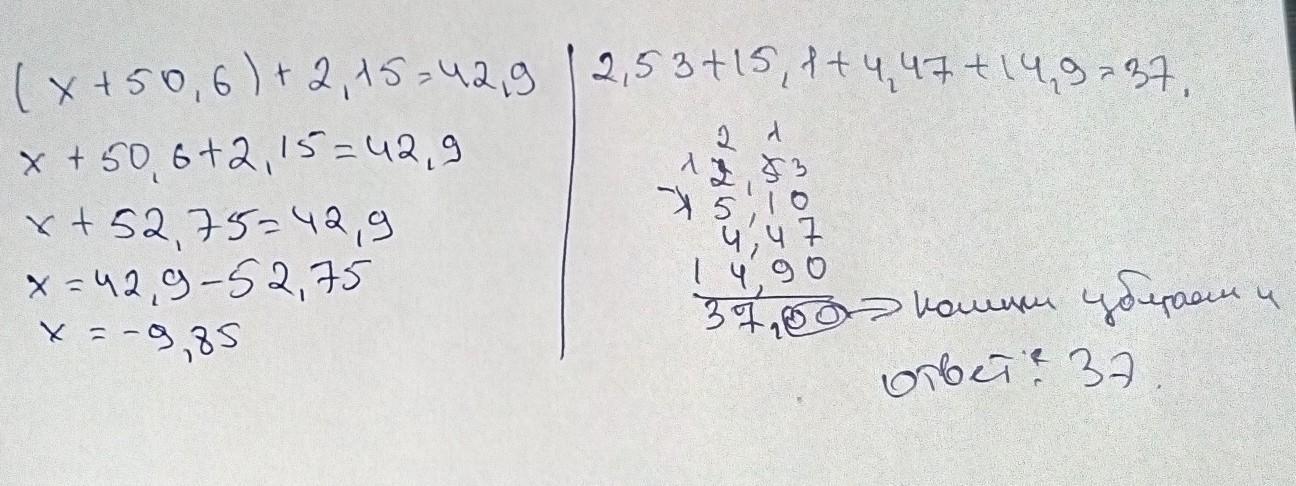 (x+50,6)+2,15=42,9
x+50,6+2,15=42,9
x+52,75=42,9
x=42,9-52,75
x=-9,85
2,53+15,1+4,47+14,9=37.
2 1
1 2,53
+15,10
4,47
14,90
37,00 → убираем и
ответ: 37.